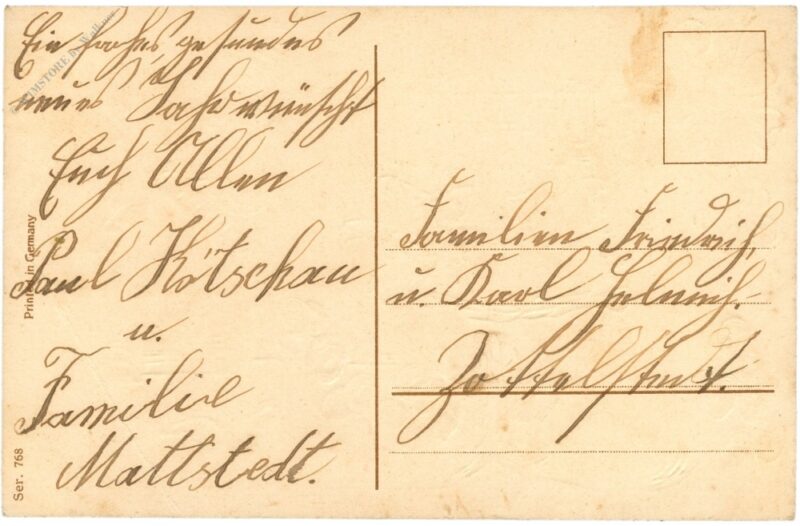 Ein frohes, gesundes
neues Jahr wünscht
Euch Allen
Paul Kötschau
u.
Familie
Mattstedt.
Familien Friedrich,
u. Karl Helmrich.
Zottelstedt.
Printed in Germany
Ser. 768